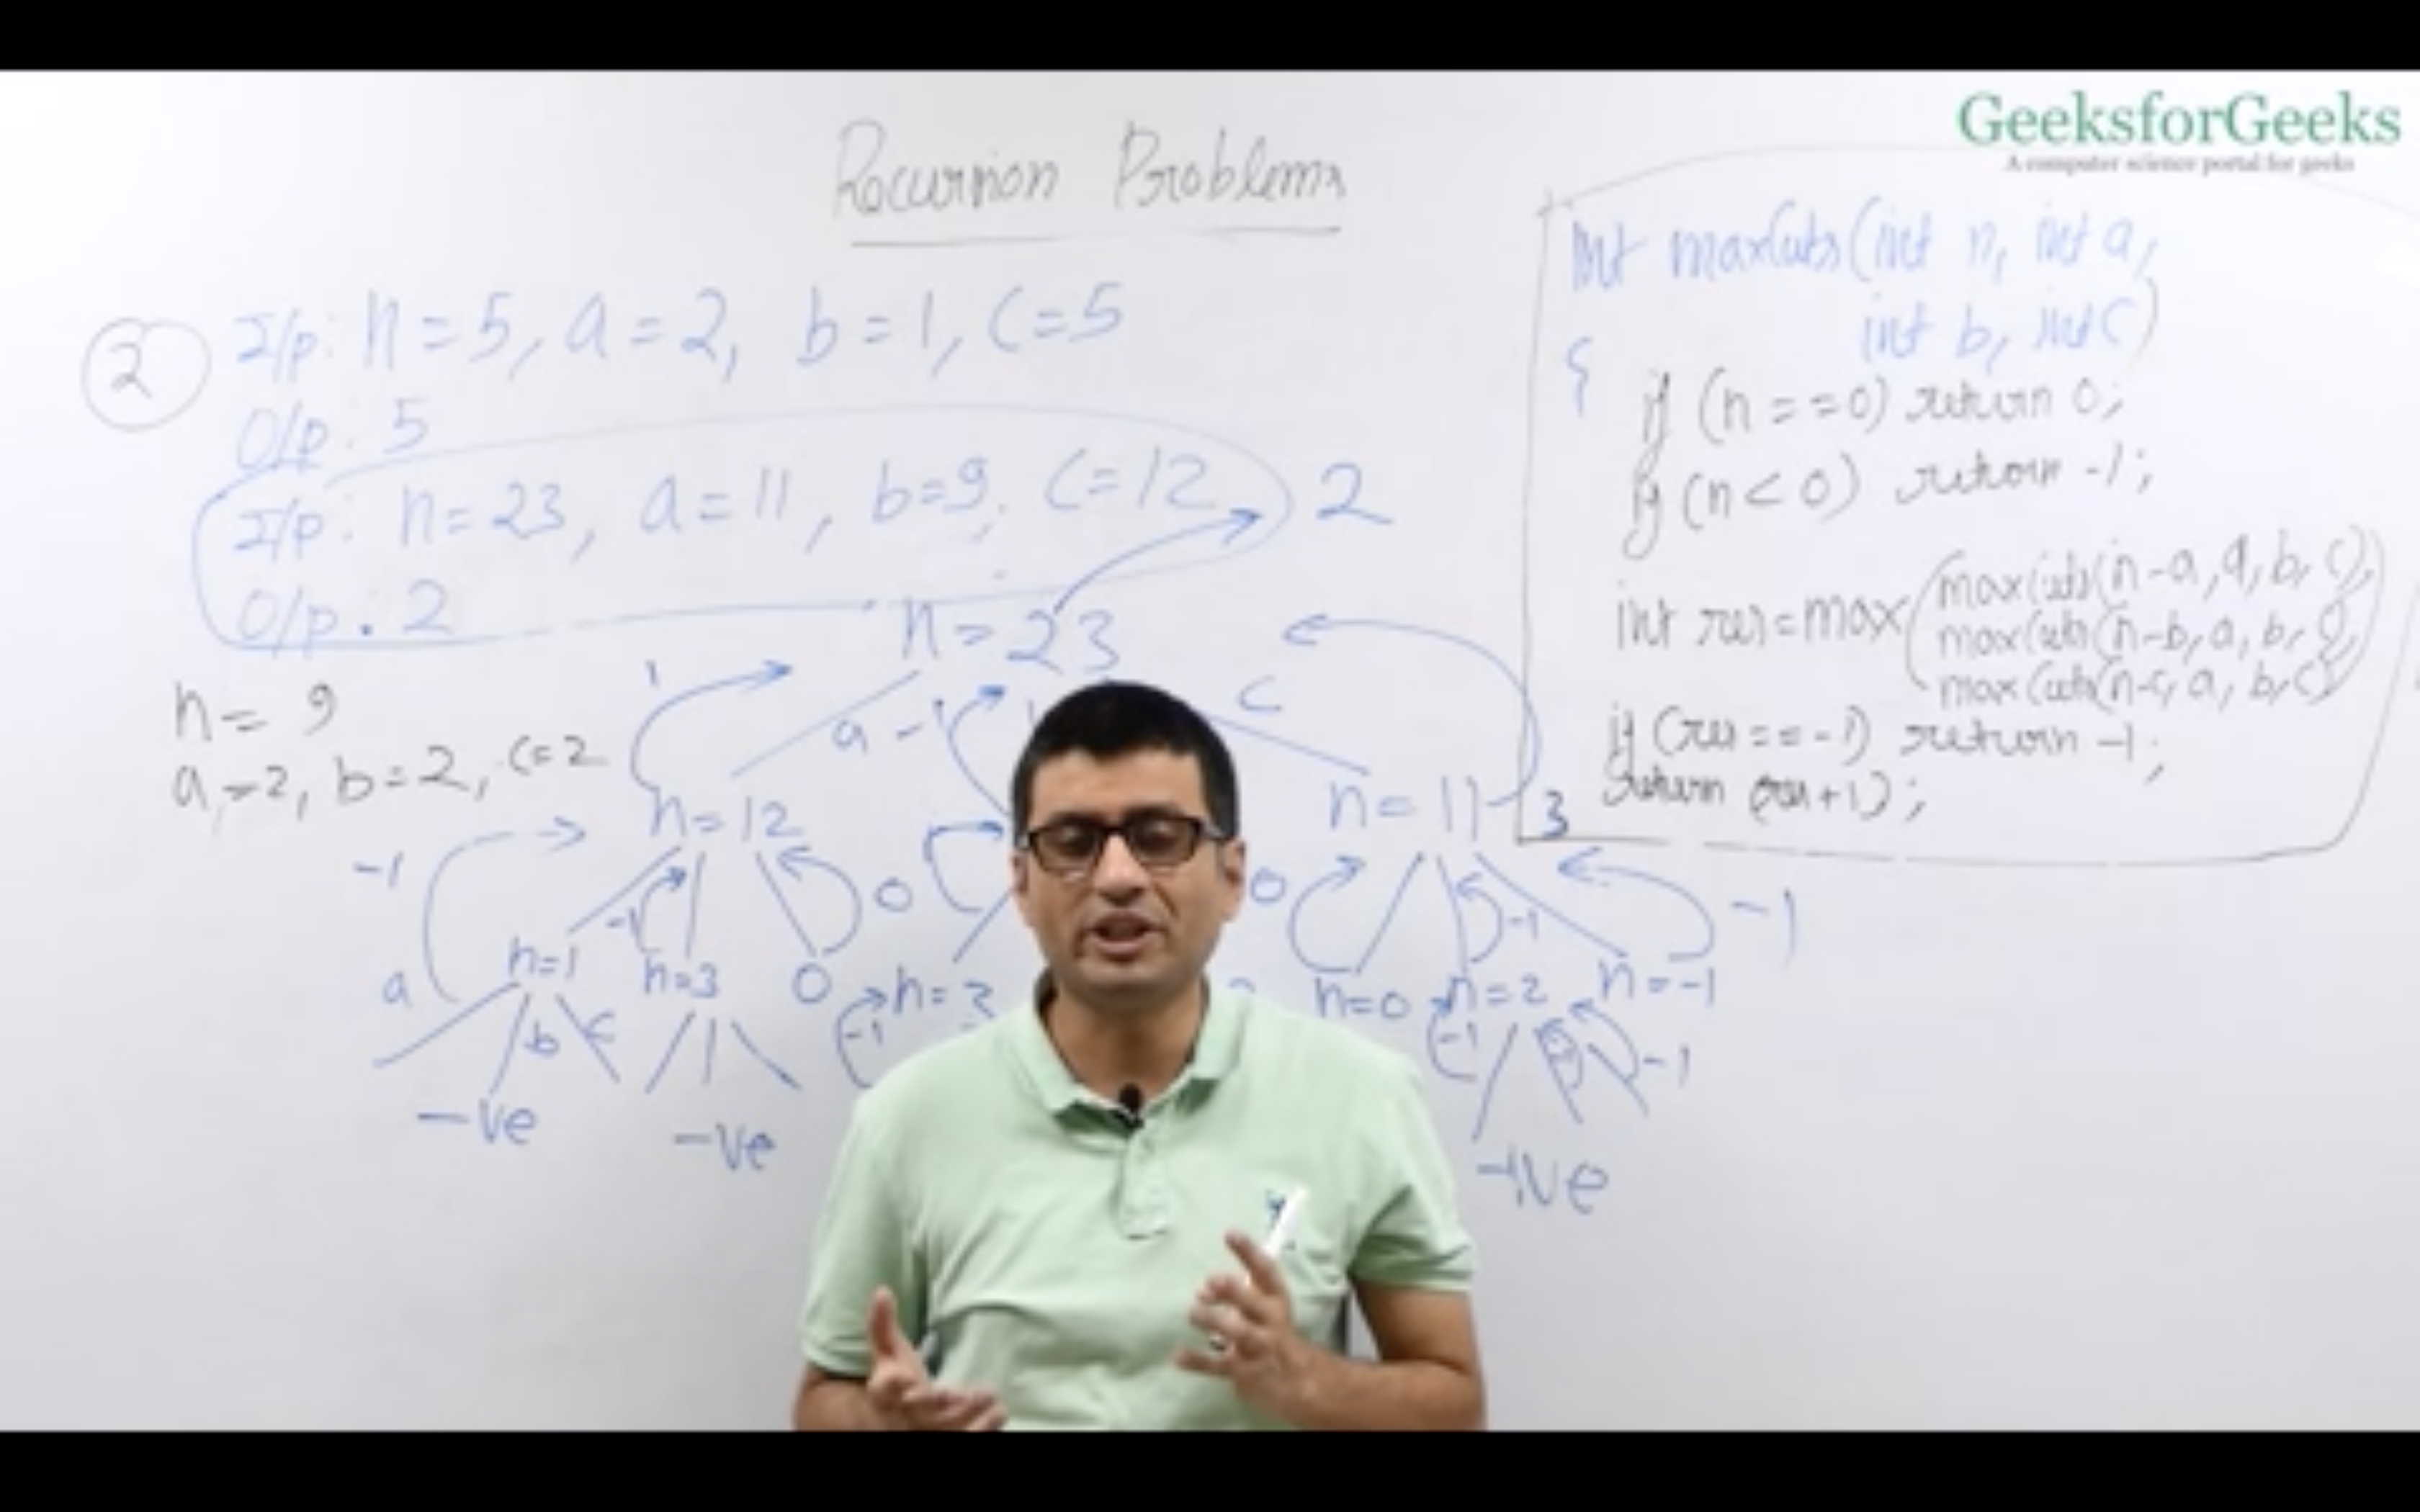 GeeksforGeeks
A computer science portal for geeks
Recursion Problems
2
I/p: n=5, a=2, b=1, c=5
O/p: 5
I/p: n=23, a=11, b=9, c=12
2
O/p: 2
n=23
n=9
a=2, b=2, c=2
1
a
-1
c
n=12
n=11
3
-1
-1
0
0
-1
-1
n=1
n=3
0
n=3
n=0
n=2
n=-1
a
b
c
-1
-1
-1
-ve
-ve
-ve
int maxCuts(int n, int a,
int b, int c)
{
if (n==0) return 0;
if (n<0) return -1;
int res=max(maxCuts(n-a,a,b,c),
maxCuts(n-b,a,b,c),
maxCuts(n-c,a,b,c))
if (res==-1) return -1;
return (res+1);